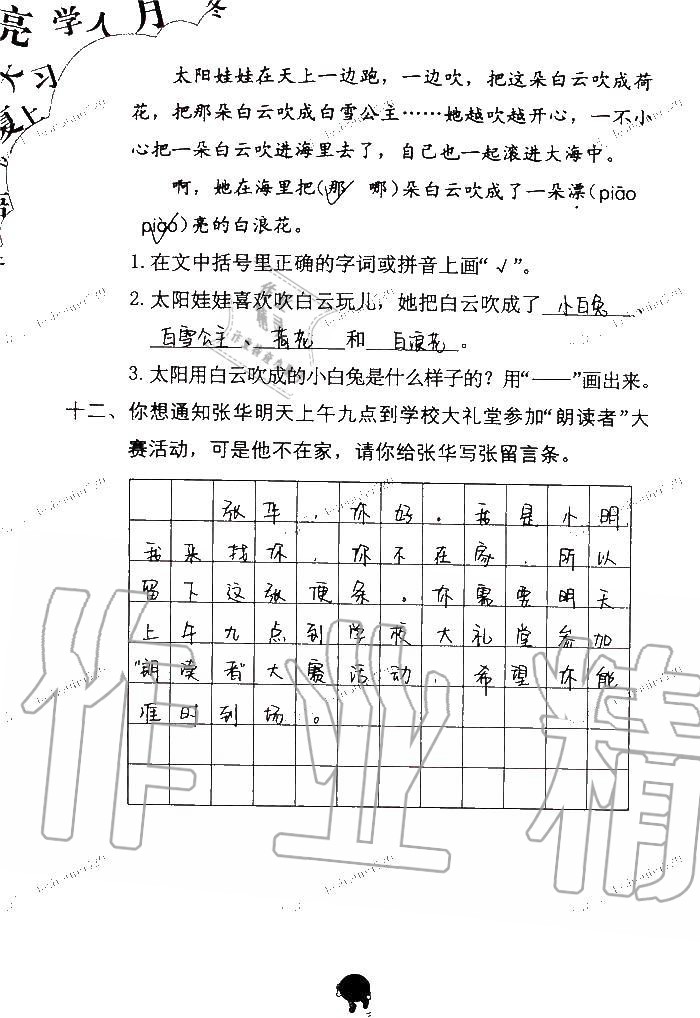 亮学人月冬
太阳娃娃在天上一边跑，一边吹，把这朵白云吹成荷
花，把那朵白云吹成白雪公主……她越吹越开心，一不小
心把一朵白云吹进海里去了，自己也一起滚进大海中。
啊，她在海里把(那√ 哪)朵白云吹成了一朵漂(piāo
piào√)亮的白浪花。
1. 在文中括号里正确的字词或拼音上画“√”。
2. 太阳娃娃喜欢吹白云玩儿，她把白云吹成了 小白兔 、
白雪公主、荷花 和 白浪花 。
3. 太阳用白云吹成的小白兔是什么样子的？用“——”画出来。
十二、你想通知张华明天上午九点到学校大礼堂参加“朗读者”大
赛活动，可是他不在家，请你给张华写张留言条。
张华，你好。我是小明
我来找你，你不在家，所以
留下这张便条。你需要明天
上午九点到学校大礼堂参加
“朗读者”大赛活动，希望你能
准时到场。
作业精